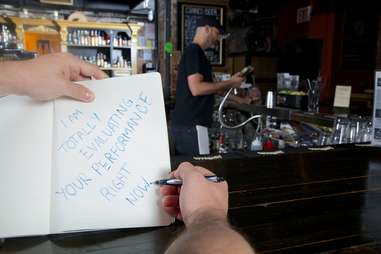 I AM
TOTALLY
EVALUATING
YOUR PERFORMANCE
RIGHT
NOW